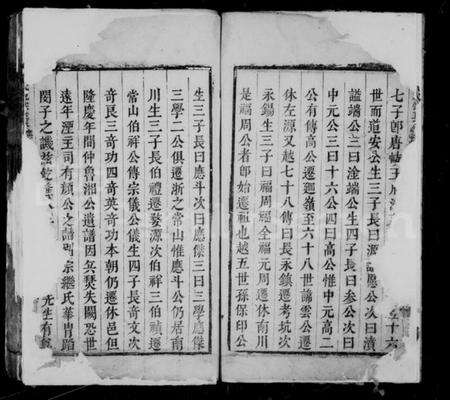 七子即唐
世而道安公生三子長曰 愿公次曰瀆
謚端公三曰淦端公生四子長曰參公次曰
中元公三曰十六公四曰高公惟中元高二
公有傳高公遷迴嶺至六十八世諦雲公遷
休左源又越七十八傳曰長永鎮遷考坑次
永錫生三子曰福周經全福元周遷休南川
是福周公者郎始遷祖也越五世孫保印公
生三子長曰應斗次曰應傑三曰三學應傑
三學二公俱遷浙之常山惟應斗公仍居南
川生三子長伯禮遷婺源次伯祥三伯禎遷
常山伯祥公傳宗儀公儀生四子長奇文次
奇良三奇功四奇英奇功本朝仍遷休邑但
隆慶年間仲魯湘公遺譜因兵焚失闕恐世
遠年湮王司有頡公之譜 宗繼氏華胄踏
閔子之譏茲乾
先生有
十六